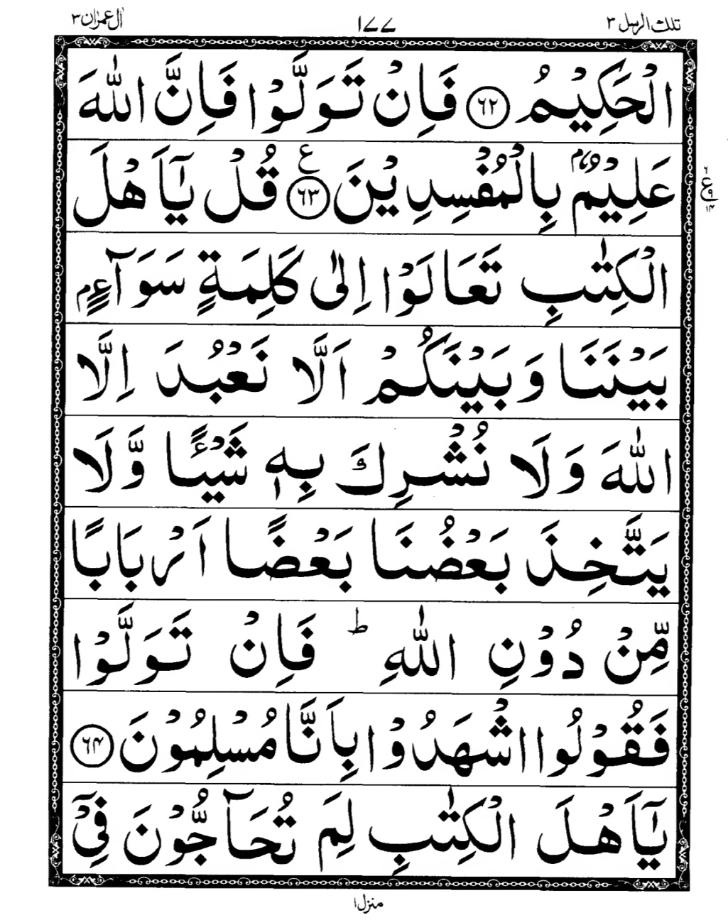 تلك الرسل ٣
١٧٧
اٰل عمرٰن ٣
الْحَكِيْمُ ۝٦٢ فَاِنْ تَوَلَّوْا فَاِنَّ اللّٰهَ
عَلِيْمٌۢ بِالْمُفْسِدِيْنَ ۝٦٣ ع قُلْ يٰۤاَهْلَ
ع ٦ ٩ ١٤
الْكِتٰبِ تَعَالَوْا اِلٰى كَلِمَةٍ سَوَآءٍۭ
بَيْنَنَا وَبَيْنَكُمْ اَلَّا نَعْبُدَ اِلَّا
اللّٰهَ وَلَا نُشْرِكَ بِهٖ شَيْـًٔا وَّلَا
يَتَّخِذَ بَعْضُنَا بَعْضًا اَرْبَابًا
مِّنْ دُوْنِ اللّٰهِ ؕ فَاِنْ تَوَلَّوْا
فَقُوْلُوا اشْهَدُوْا بِاَنَّا مُسْلِمُوْنَ ۝٦٤
يٰۤاَهْلَ الْكِتٰبِ لِمَ تُحَآجُّوْنَ فِيْۤ
منزل ١